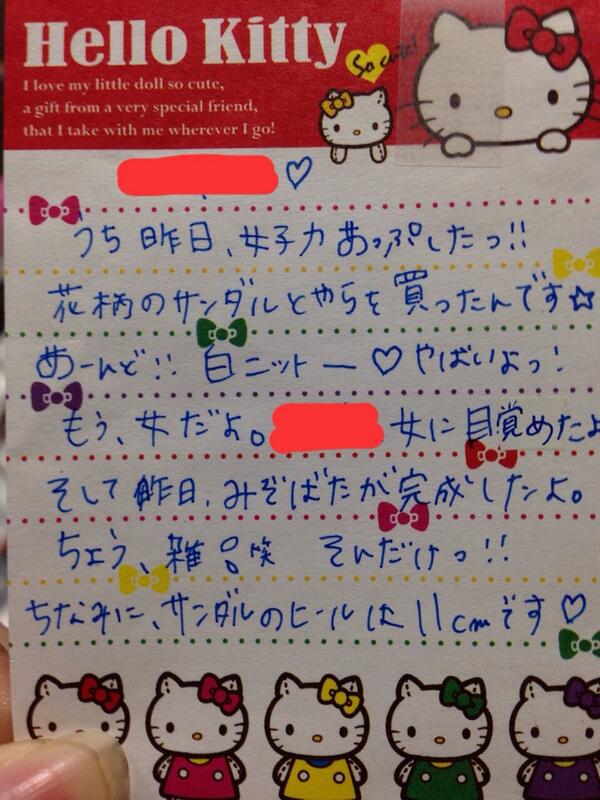 Hello Kitty
So cute!
I love my little doll so cute,
a gift from a very special friend,
that I take with me wherever I go!
♡
うち昨日、女子力あっぷしたっ!!
花柄のサンダルとやらを買ったんです☆
めーんど!! 白ニットー♡やばいよっ!
もう、女だよ。 女に目覚めたよ
そして昨日、みぞばたが完成したよ。
ちょう、雑 笑 そんだけっ!!
ちなみに、サンダルのヒールは11cmです♡